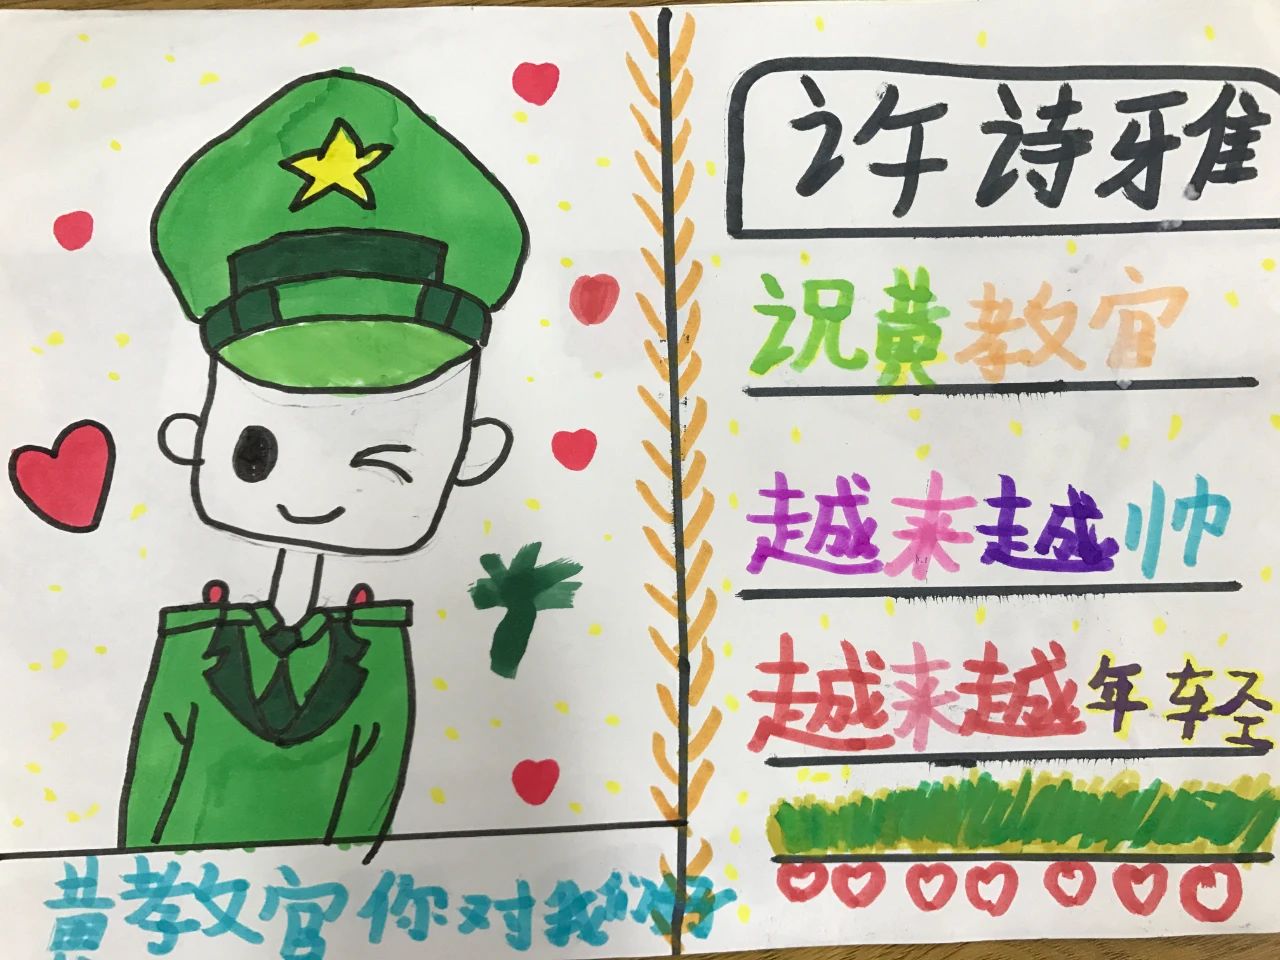 黄教官你对我们好
许诗雅
祝黄教官
越来越帅
越来越年轻